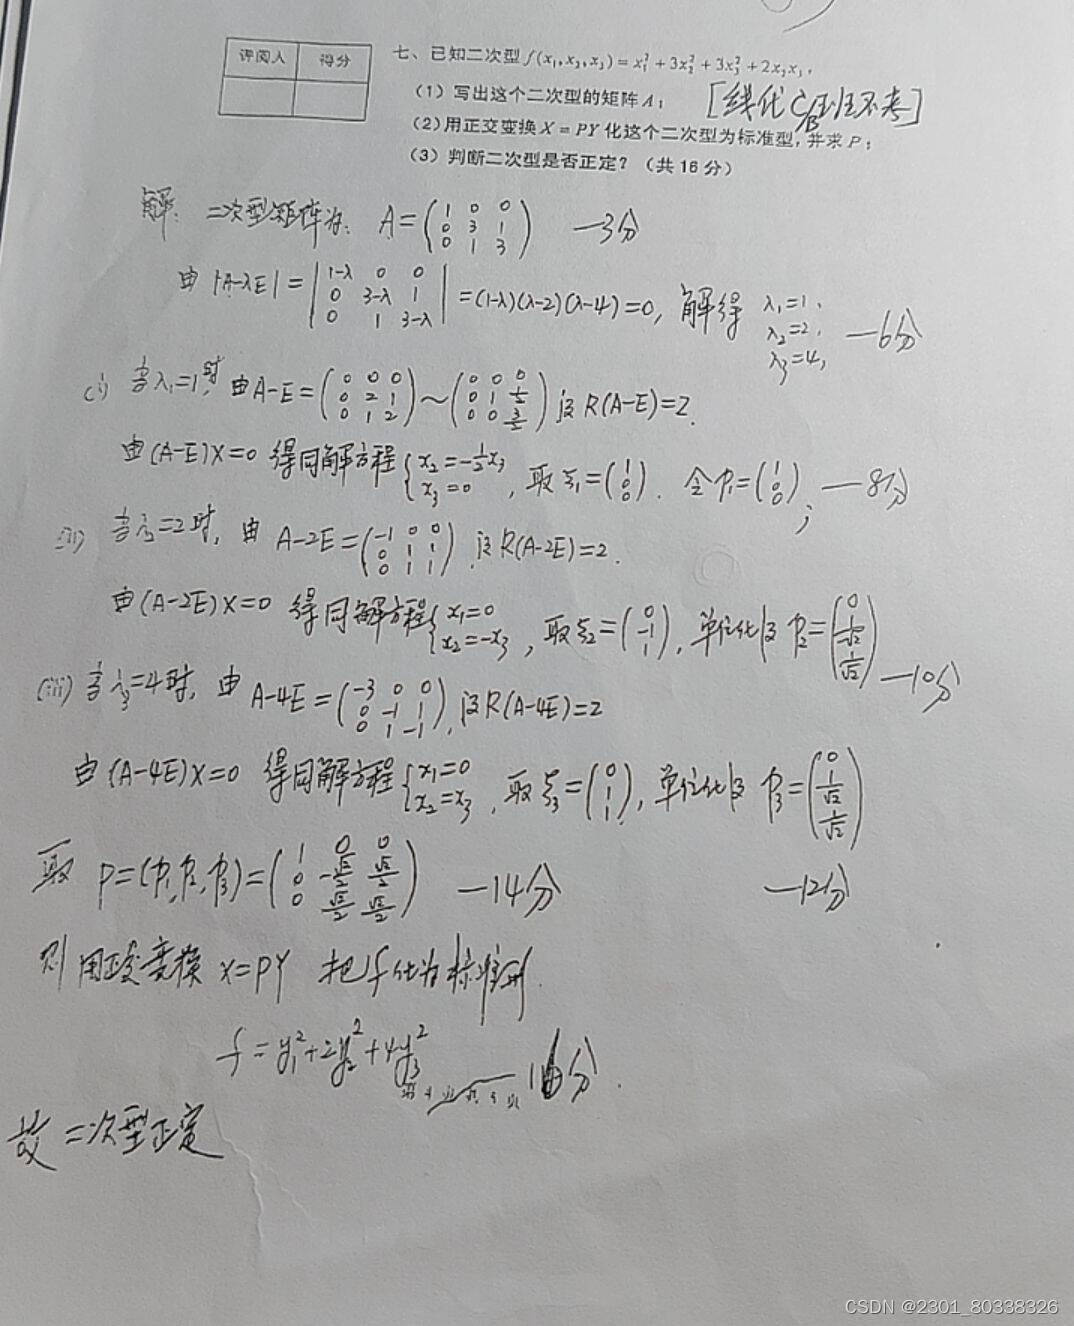 评阅人 得分
七、已知二次型 f(x₁,x₂,x₃)=x₁²+3x₂²+3x₃²+2x₂x₃,
(1) 写出这个二次型的矩阵 A; [线代C/B班不考]
(2) 用正交变换 X=PY 化这个二次型为标准型, 并求 P;
(3) 判断二次型是否正定? (共 16 分)
解: 二次型矩阵为: A=(1 0 0; 0 3 1; 0 1 3) —3分
由 |A-λE|=|1-λ 0 0; 0 3-λ 1; 0 1 3-λ|=(1-λ)(λ-2)(λ-4)=0, 解得 λ₁=1, λ₂=2, λ₃=4, —6分
(i) 当λ₁=1时, 由A-E=(0 0 0; 0 2 1; 0 1 2)~(0 0 0; 0 1 1/2; 0 0 3/2) 得 R(A-E)=2.
由(A-E)X=0 得同解方程{x₂=-1/2x₃; x₃=0, 取ξ₁=(1; 0; 0). 令p₁=(1; 0; 0); —8分
(ii) 当λ₂=2时, 由 A-2E=(-1 0 0; 0 1 1; 0 1 1), 得R(A-2E)=2.
由(A-2E)X=0 得同解方程{x₁=0; x₂=-x₃, 取ξ₂=(0; -1; 1), 单位化得 p₂=(0; -1/√2; 1/√2) —10分
(iii) 当λ₃=4时, 由 A-4E=(-3 0 0; 0 -1 1; 0 1 -1), 得R(A-4E)=2
由(A-4E)X=0 得同解方程{x₁=0; x₂=x₃, 取ξ₃=(0; 1; 1), 单位化得 p₃=(0; 1/√2; 1/√2)
取 P=(p₁,p₂,p₃)=(1 0 0; 0 -√2/2 √2/2; 0 √2/2 √2/2) —14分 —12分
则 用正交变换 X=PY 把f化为标准型.
f=y₁²+2y₂²+4y₃² —16分.
故 二次型正定
CSDN @2301_80338326